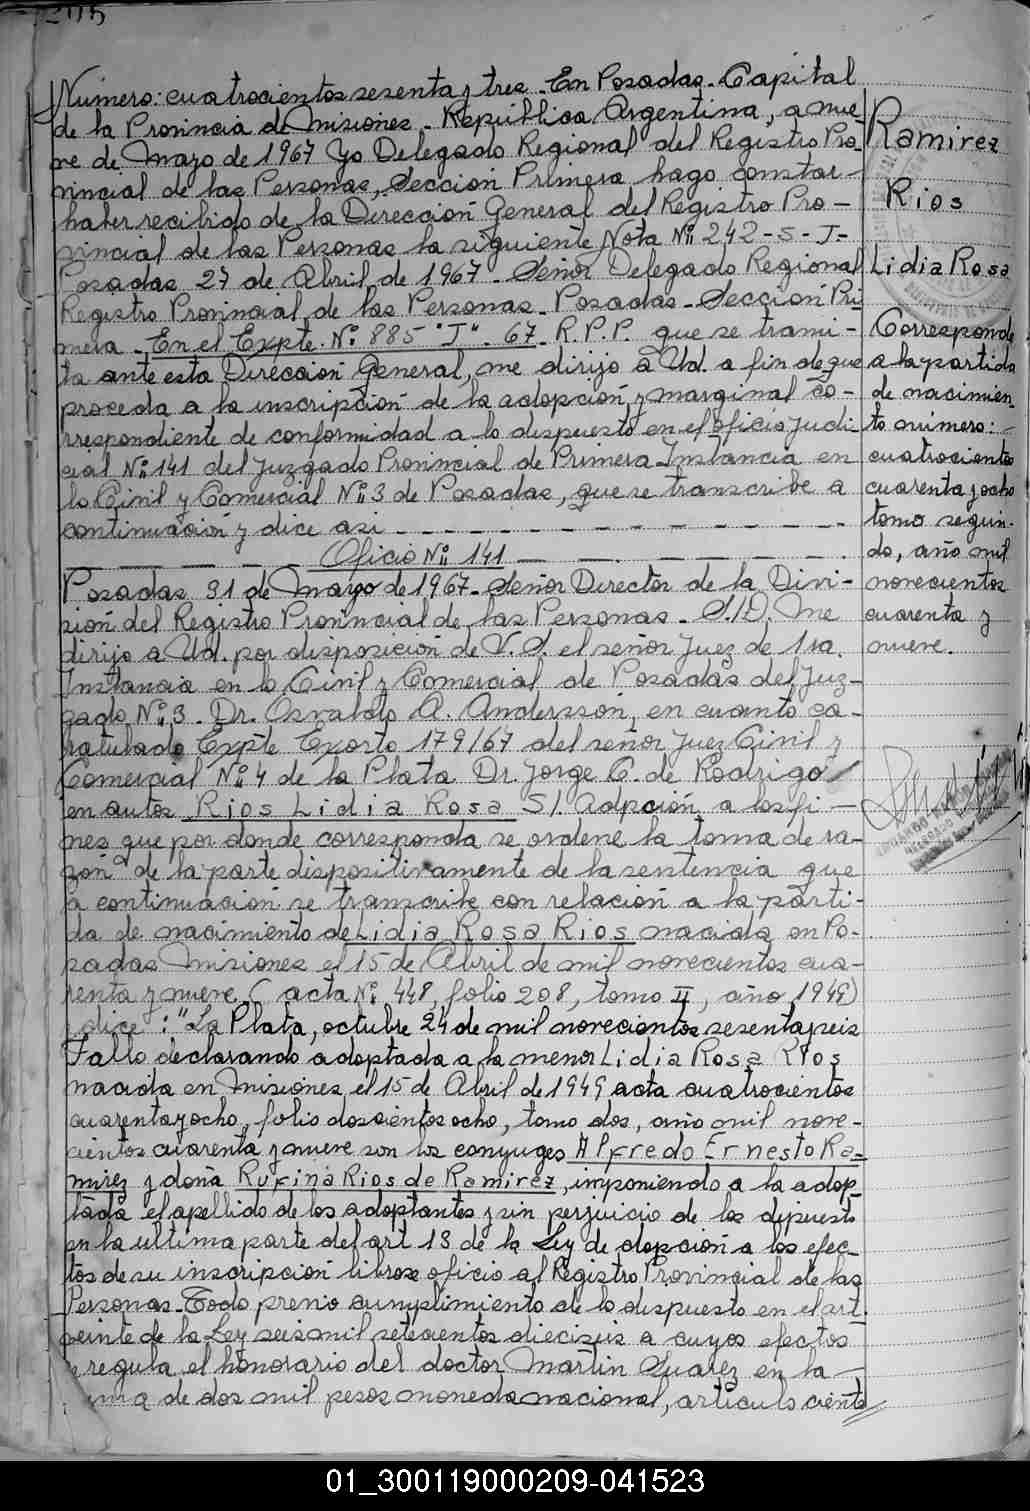 Número: cuatrocientos sesenta y tres - En Posadas - Capital
de la Provincia de Misiones - República Argentina, a nue-
ve de Mayo de 1967 Yo Delegado Regional del Registro Pro-
vincial de las Personas, Sección Primera hago constar -
haber recibido de la Dirección General del Registro Pro -
vincial de las Personas la siguiente Nota Nº 242 - S - J -
Posadas 27 de Abril de 1967 - Señor Delegado Regional
Registro Provincial de las Personas - Posadas - Sección Pri
mera - En el Expte. Nº 885 "J" - 67 - R.P.P. que se trami -
ta ante esta Dirección General, me dirijo a Ud. a fin de que
proceda a la inscripción de la adopción y marginal co -
rrespondiente de conformidad a lo dispuesto en el oficio Judi
cial Nº 141 del Juzgado Provincial de Primera Instancia en
lo Civil y Comercial Nº 3 de Posadas, que se transcribe a
continuación y dice asi - - - - - - - - - -
Oficio Nº 141
Posadas 31 de Mayo de 1967 - Señor Director de la Divi -
sión del Registro Provincial de las Personas - S./D. Me
dirijo a Ud. por disposición de V. S. el señor Juez de 1ra.
Instancia en lo Civil y Comercial de Posadas del Juz-
gado Nº 3 - Dr. Osvaldo A. Andersson, en cuanto ca -
ratulado Expte Exorto 179/67 del señor Juez Civil y
Comercial Nº 4 de la Plata Dr. Jorge C. de Rodrigo
en autos Rios Lidia Rosa S/. Adpción, a los fi -
nes que por donde corresponda se ordene la toma de ra-
zón de la parte dispositivamente de la sentencia que
a continuación se transcribe con relación a la parti-
da de nacimiento de Lidia Rosa Rios nacida en Po-
sadas Misiones el 15 de Abril de mil novecientos cua-
renta y nueve, (acta Nº 448, folio 208, tomo II, año 1949)
y dice: "La Plata, octubre 24 de mil novecientos sesenta y seis
Fallo declarando adoptada a la menor Lidia Rosa Rios
nacida en Misiones el 15 de Abril de 1949 acta cuatrocientos
cuarenta y ocho, folio doscientos ocho, tomo dos, año mil nove-
cientos cuarenta y nueve son los conyuges Alfredo Ernesto Ra-
mirez y doña Rufina Rios de Ramirez, imponiendo a la adop
tada el apellido de los adoptantes y sin perjuicio de los dipuesto
en la ultima parte del art 13 de la Ley de dopción a los efec-
tos de su inscripción librose oficio al Registro Provincial de las
Personas - Todo previo cumplimiento de lo dispuesto en el art.
veinte de la Ley seis mil setecientos dieciseis a cuyos efectos
regula el honorario del doctor Martin Suarez en la
de dos mil pesos moneda nacional, articulo ciento
Ramirez
Rios
Lidia Rosa
Corresponde
a la partida
de nacimien
to número: -
cuatrocientos
cuarenta y ocho
tomo segun-
do, año mil
novecientos
cuarenta y
nueve.
01_300119000209-041523